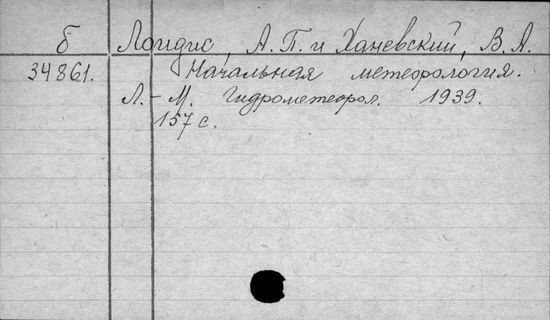 б Лоидис, А. П. и Ханевский, В. А.
34861. Начальная метеорология.
Л.-М. Гидрометеорол. 1939.
157 с.